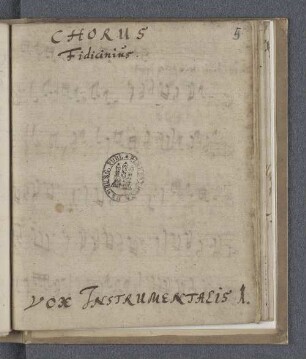 CHORUS
5
Fidicinius.
VOX INSTRUMENTALIS 1.